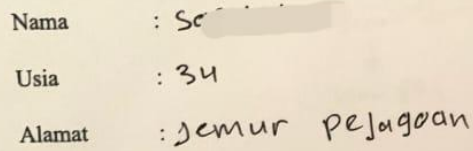 Nama :
Usia : 34
Alamat : Jemur pejagoan